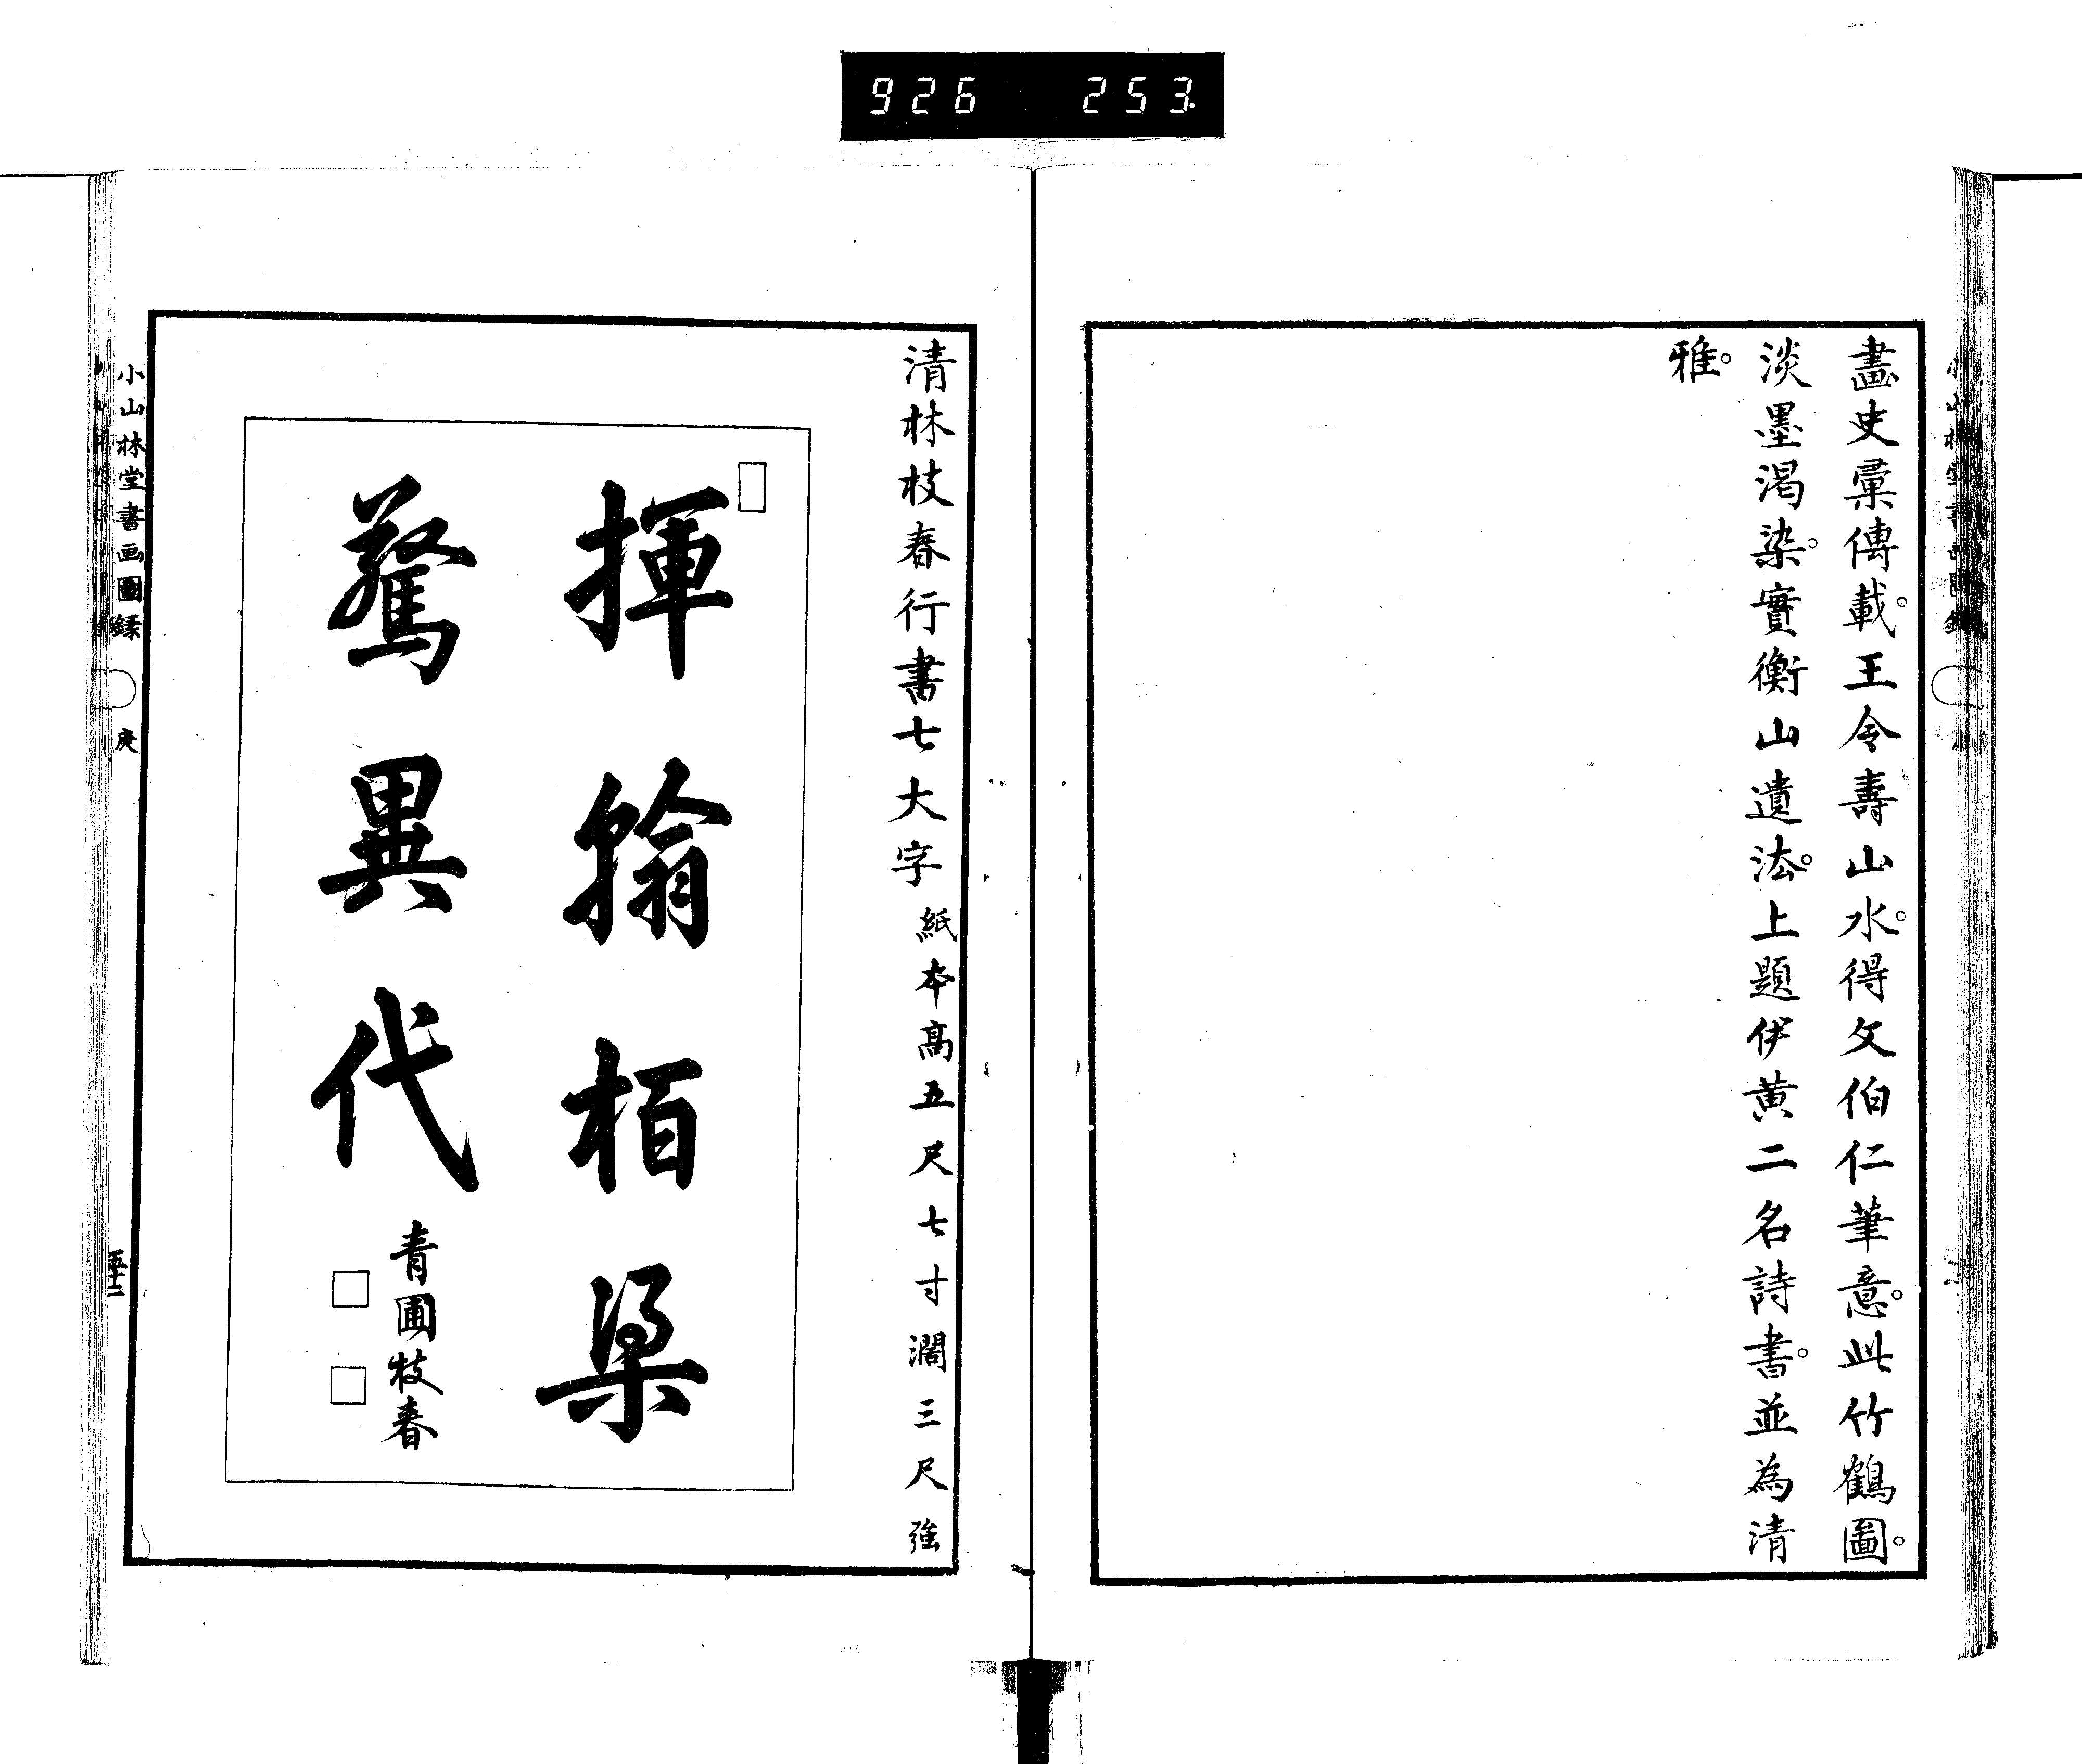 926 253
畫史彙傳載。王令壽山水。得文伯仁筆意。此竹鶴圖。
淡墨渴染。實衡山遺法。上題伊黄二名詩書。並為清
雅。
清林枝春行書七大字 紙本高五尺七寸濶三尺強
揮翰栢梁
驚異代
青圃枝春
小山林堂書画圖録 庚
五十二